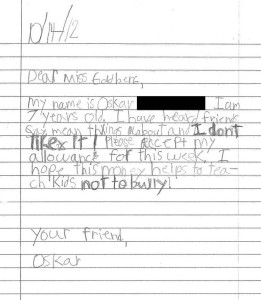 10/14/12
Dear Miss Goldberg,
My name is Oskar I am
7 years old. I have heard friends
say mean things about and I dont
like it! Please accept my
allowance for this week. I
hope this money helps to tea-
ch kids not to bully!
Your friend,
Oskar